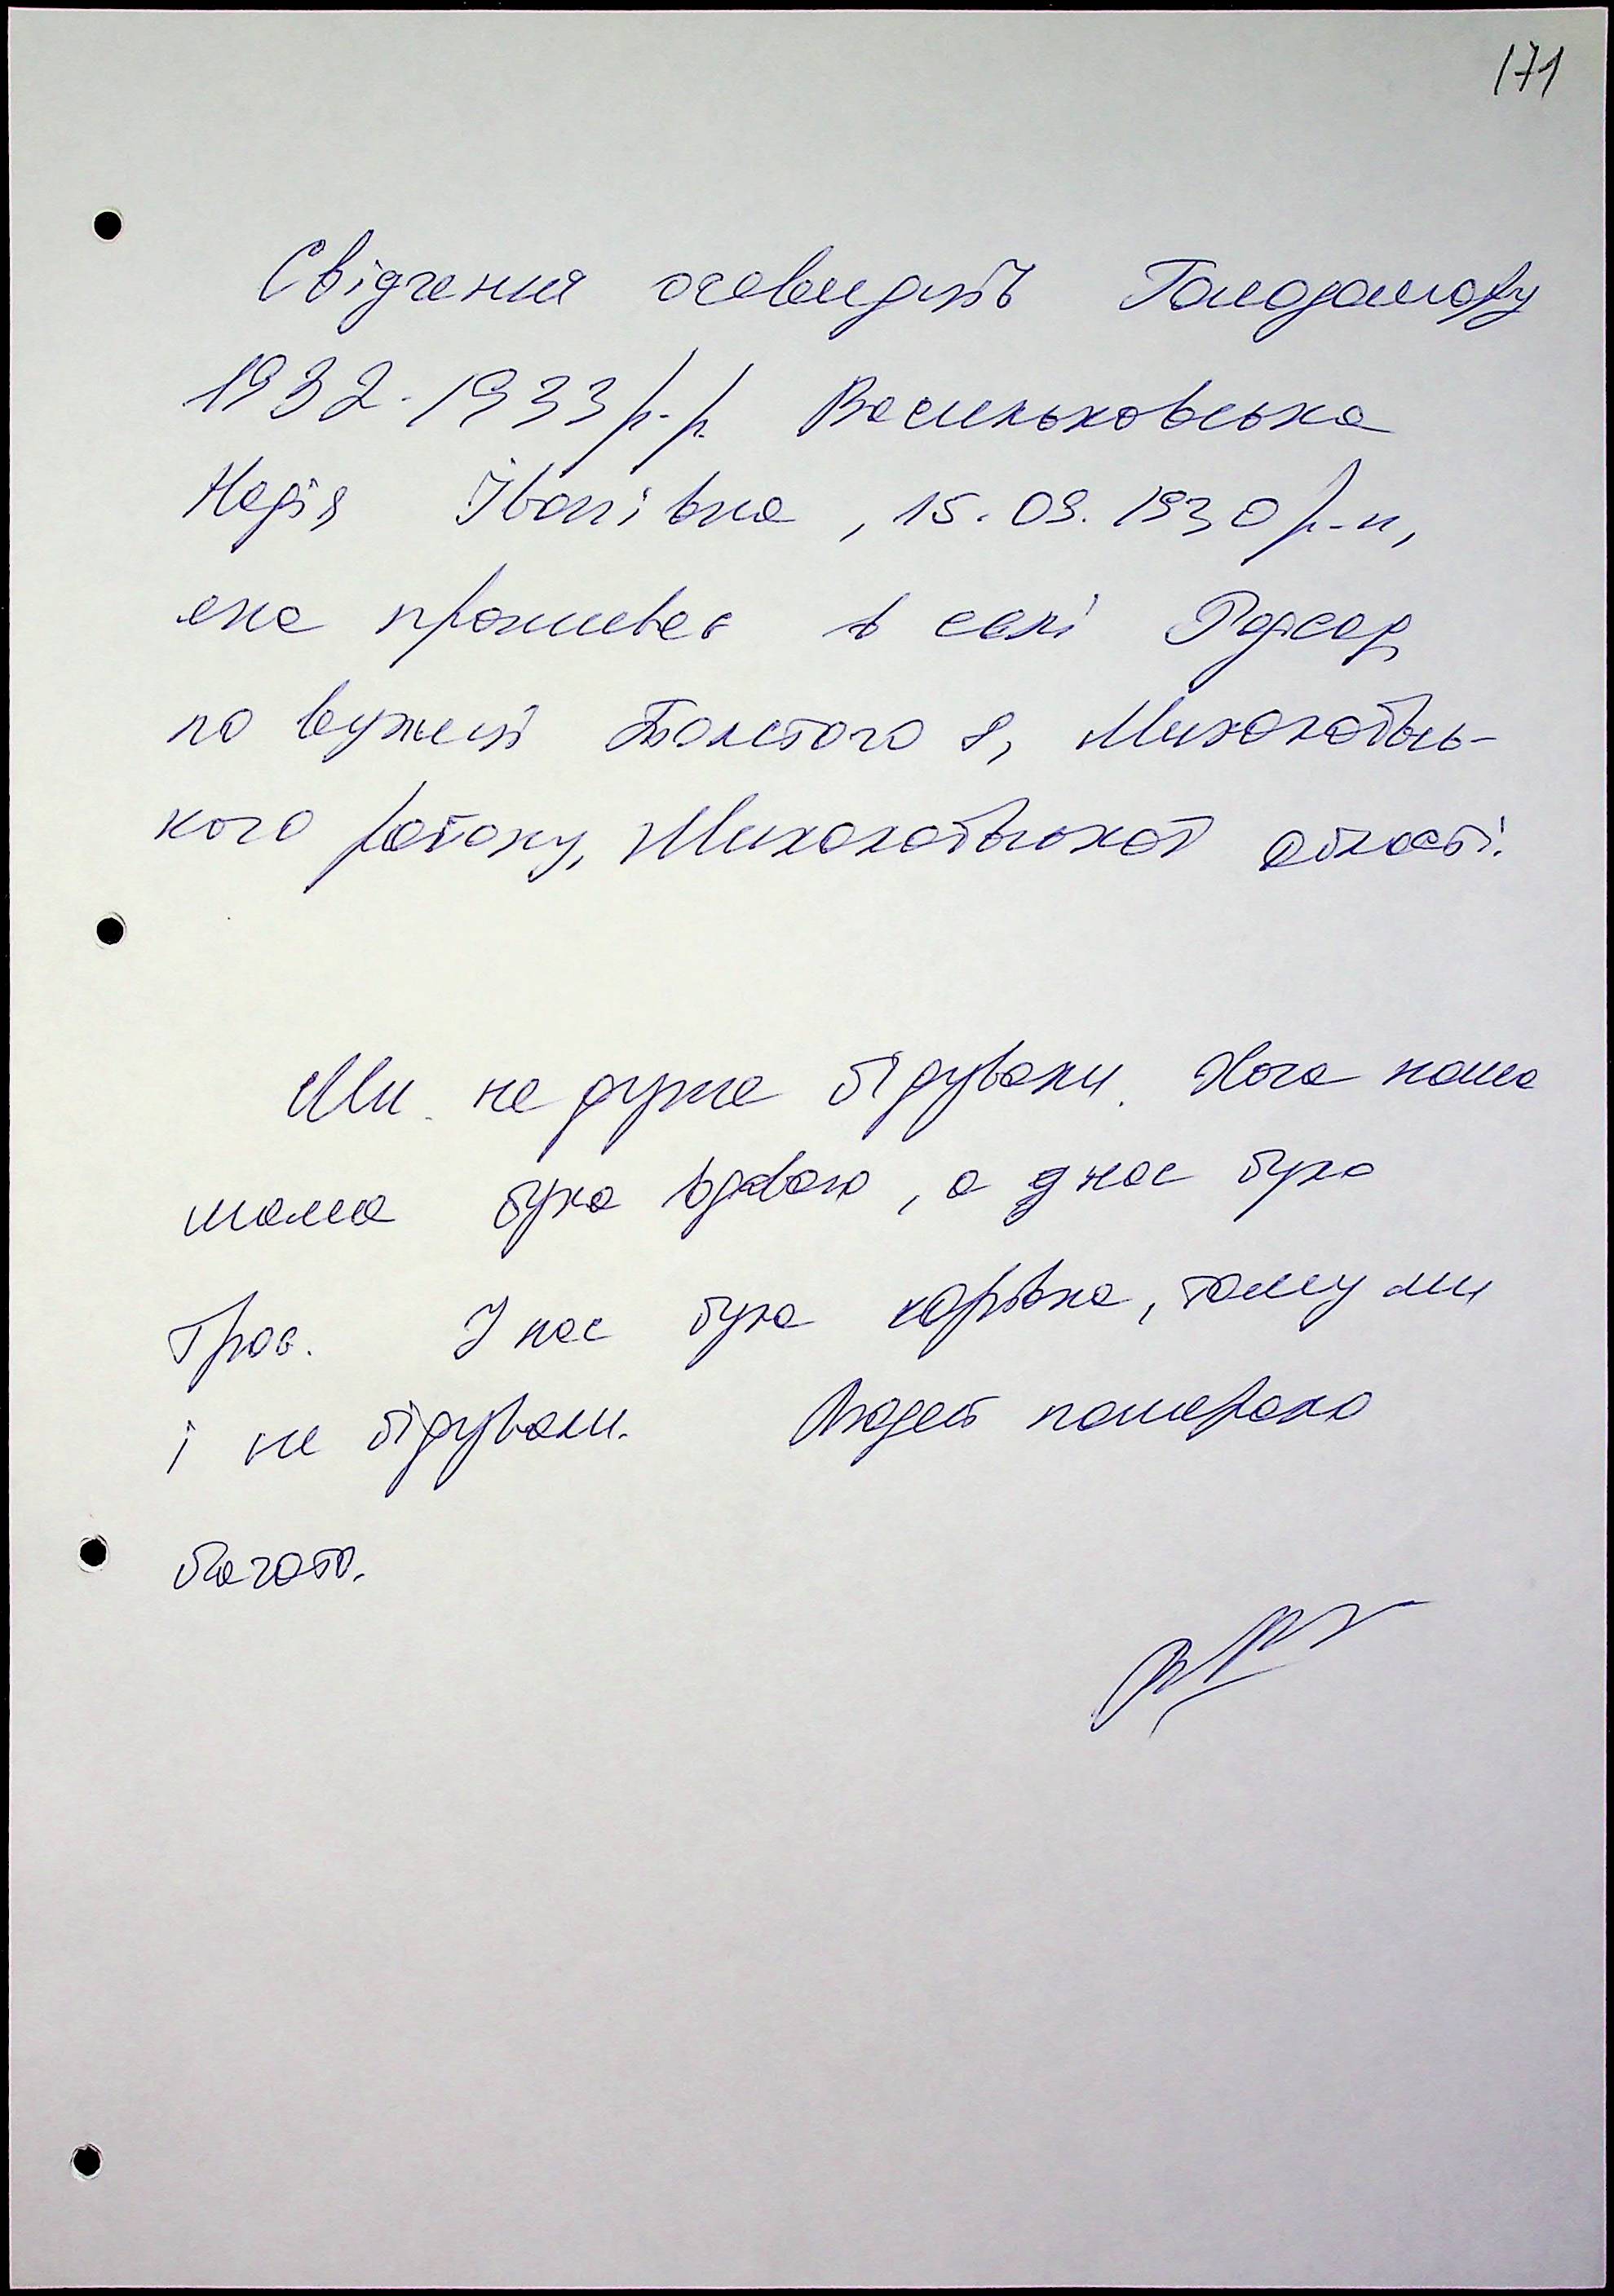 171
Свідчення очевидців Голодомору
1932-1933 р.р. Васильковська
Надія Іванівна, 15.09.1930 р-н,
яка проживає в селі Радсад
по вулиці Толстого 8, Миколаївсь-
кого району, Миколаївської області.
Ми не дуже бідували. Хоча наша
мама була вдовою, а у нас було
троє. У нас була корівка, тому ми
і не бідували. Людей померало
багато.